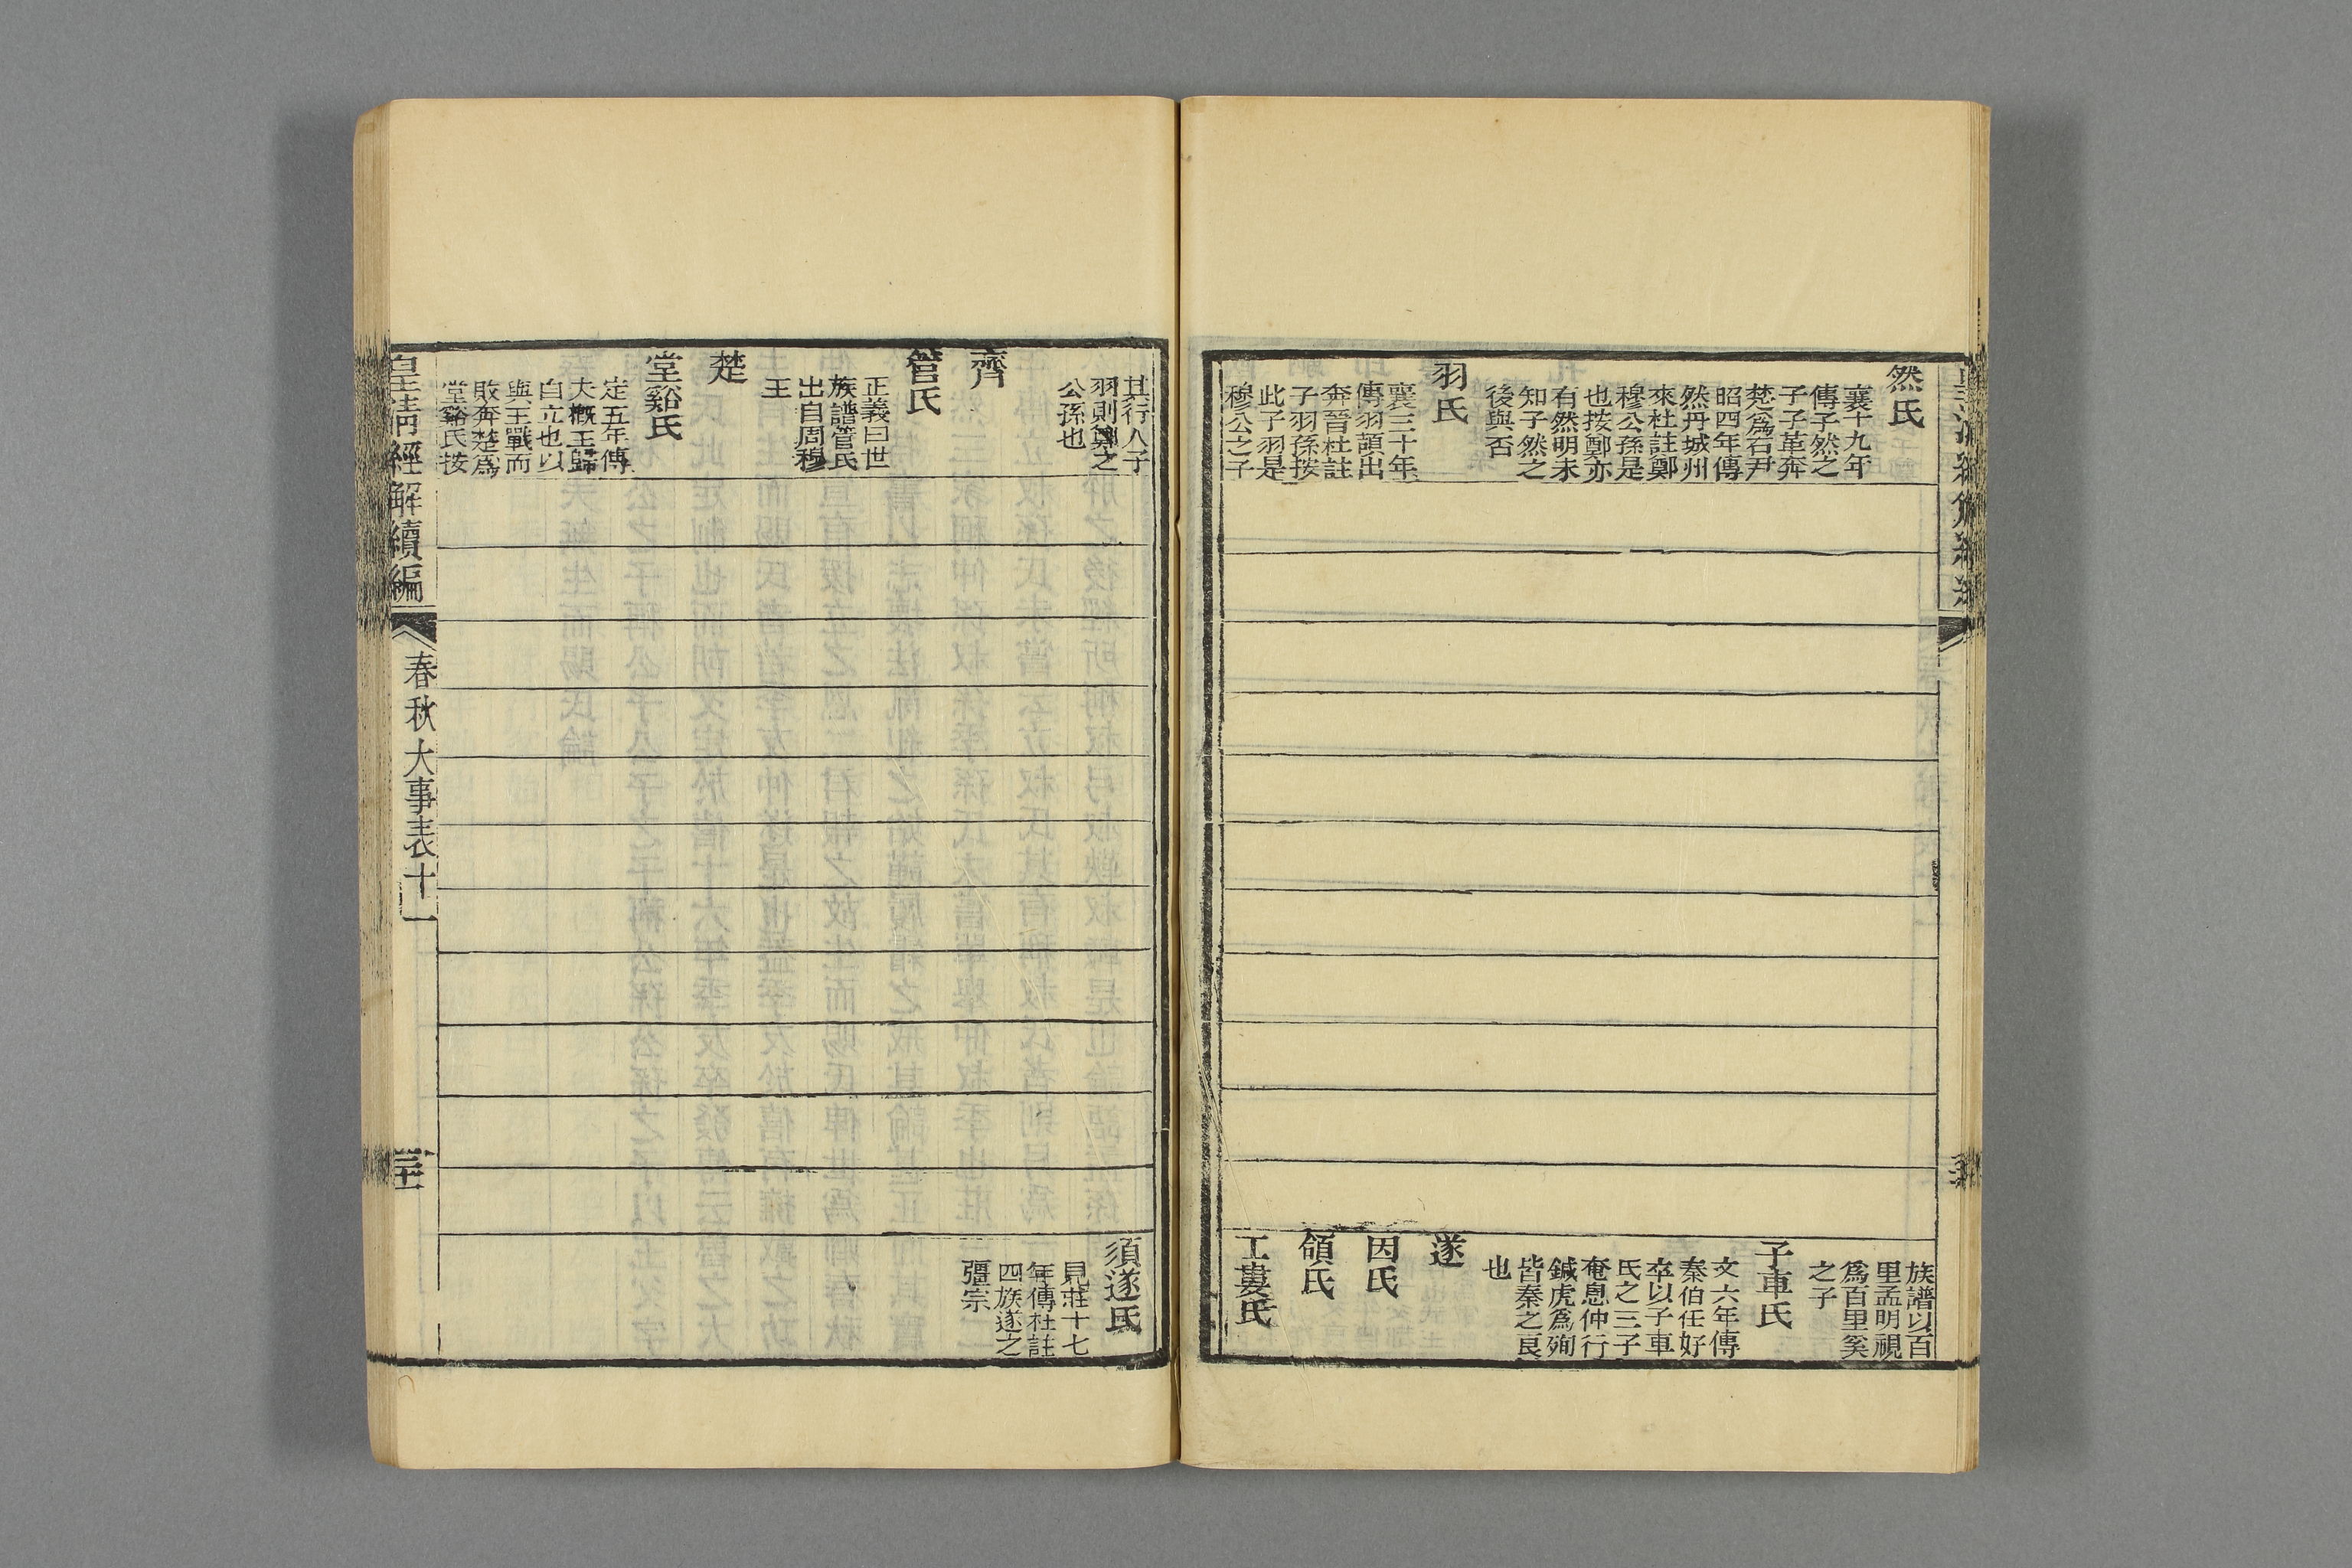 然氏
襄十九年
傳子然之
子子革奔
楚爲右尹
昭四年傳
然丹城州
來杜註鄭
穆公孫是
也按鄭亦
有然明未
知子然之
後與否
羽氏
襄三十年
傳羽頡出
奔晉杜註
子羽孫按
此子羽是
穆公之子
族譜以百
里孟明視
爲百里奚
之子
子車氏
文六年傳
秦伯任好
卒以子車
氏之三子
奄息仲行
鍼虎爲殉
皆秦之良
也
遂
因氏
頜氏
工婁氏
其行人子
羽則鄭之
公孫也
齊
管氏
正義曰世
族譜管氏
出自周穆
王
楚
堂谿氏
定五年傳
夫概王歸
自立也以
與王戰而
敗奔楚爲
堂谿氏按
須遂氏
見莊十七
年傳杜註
四族遂之
彊宗
皇淸經解續編
春秋大事表十一